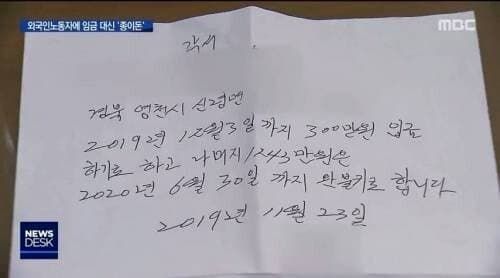 외국인노동자에 임금 대신 '종이돈'
MBC
각서
경북 영천시
2019년 12월3일까지 300만원 입금
하기로 하고 나머지1243만원은
2020년 6월 30일 까지 완불키로 합니다
2019년 11월 23일
NEWS
DESK